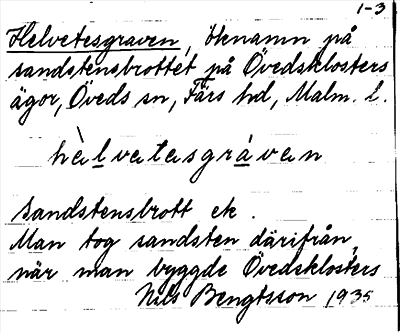 1-3
Helvetesgraven, öknamn på
sandstensbrottet på Övedsklosters
ägor, Öveds sn, Färs hd, Malm. l.
hàlvatasgràvan
Sandstensbrott etc.
Man tog sandsten därifrån,
när man byggde Övedsklosters
Nils Bengtsson 1935